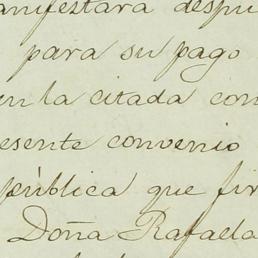 anifestara despu
para su pago
en la citada con
esente convenio
pública que fir
Doña Rafaela